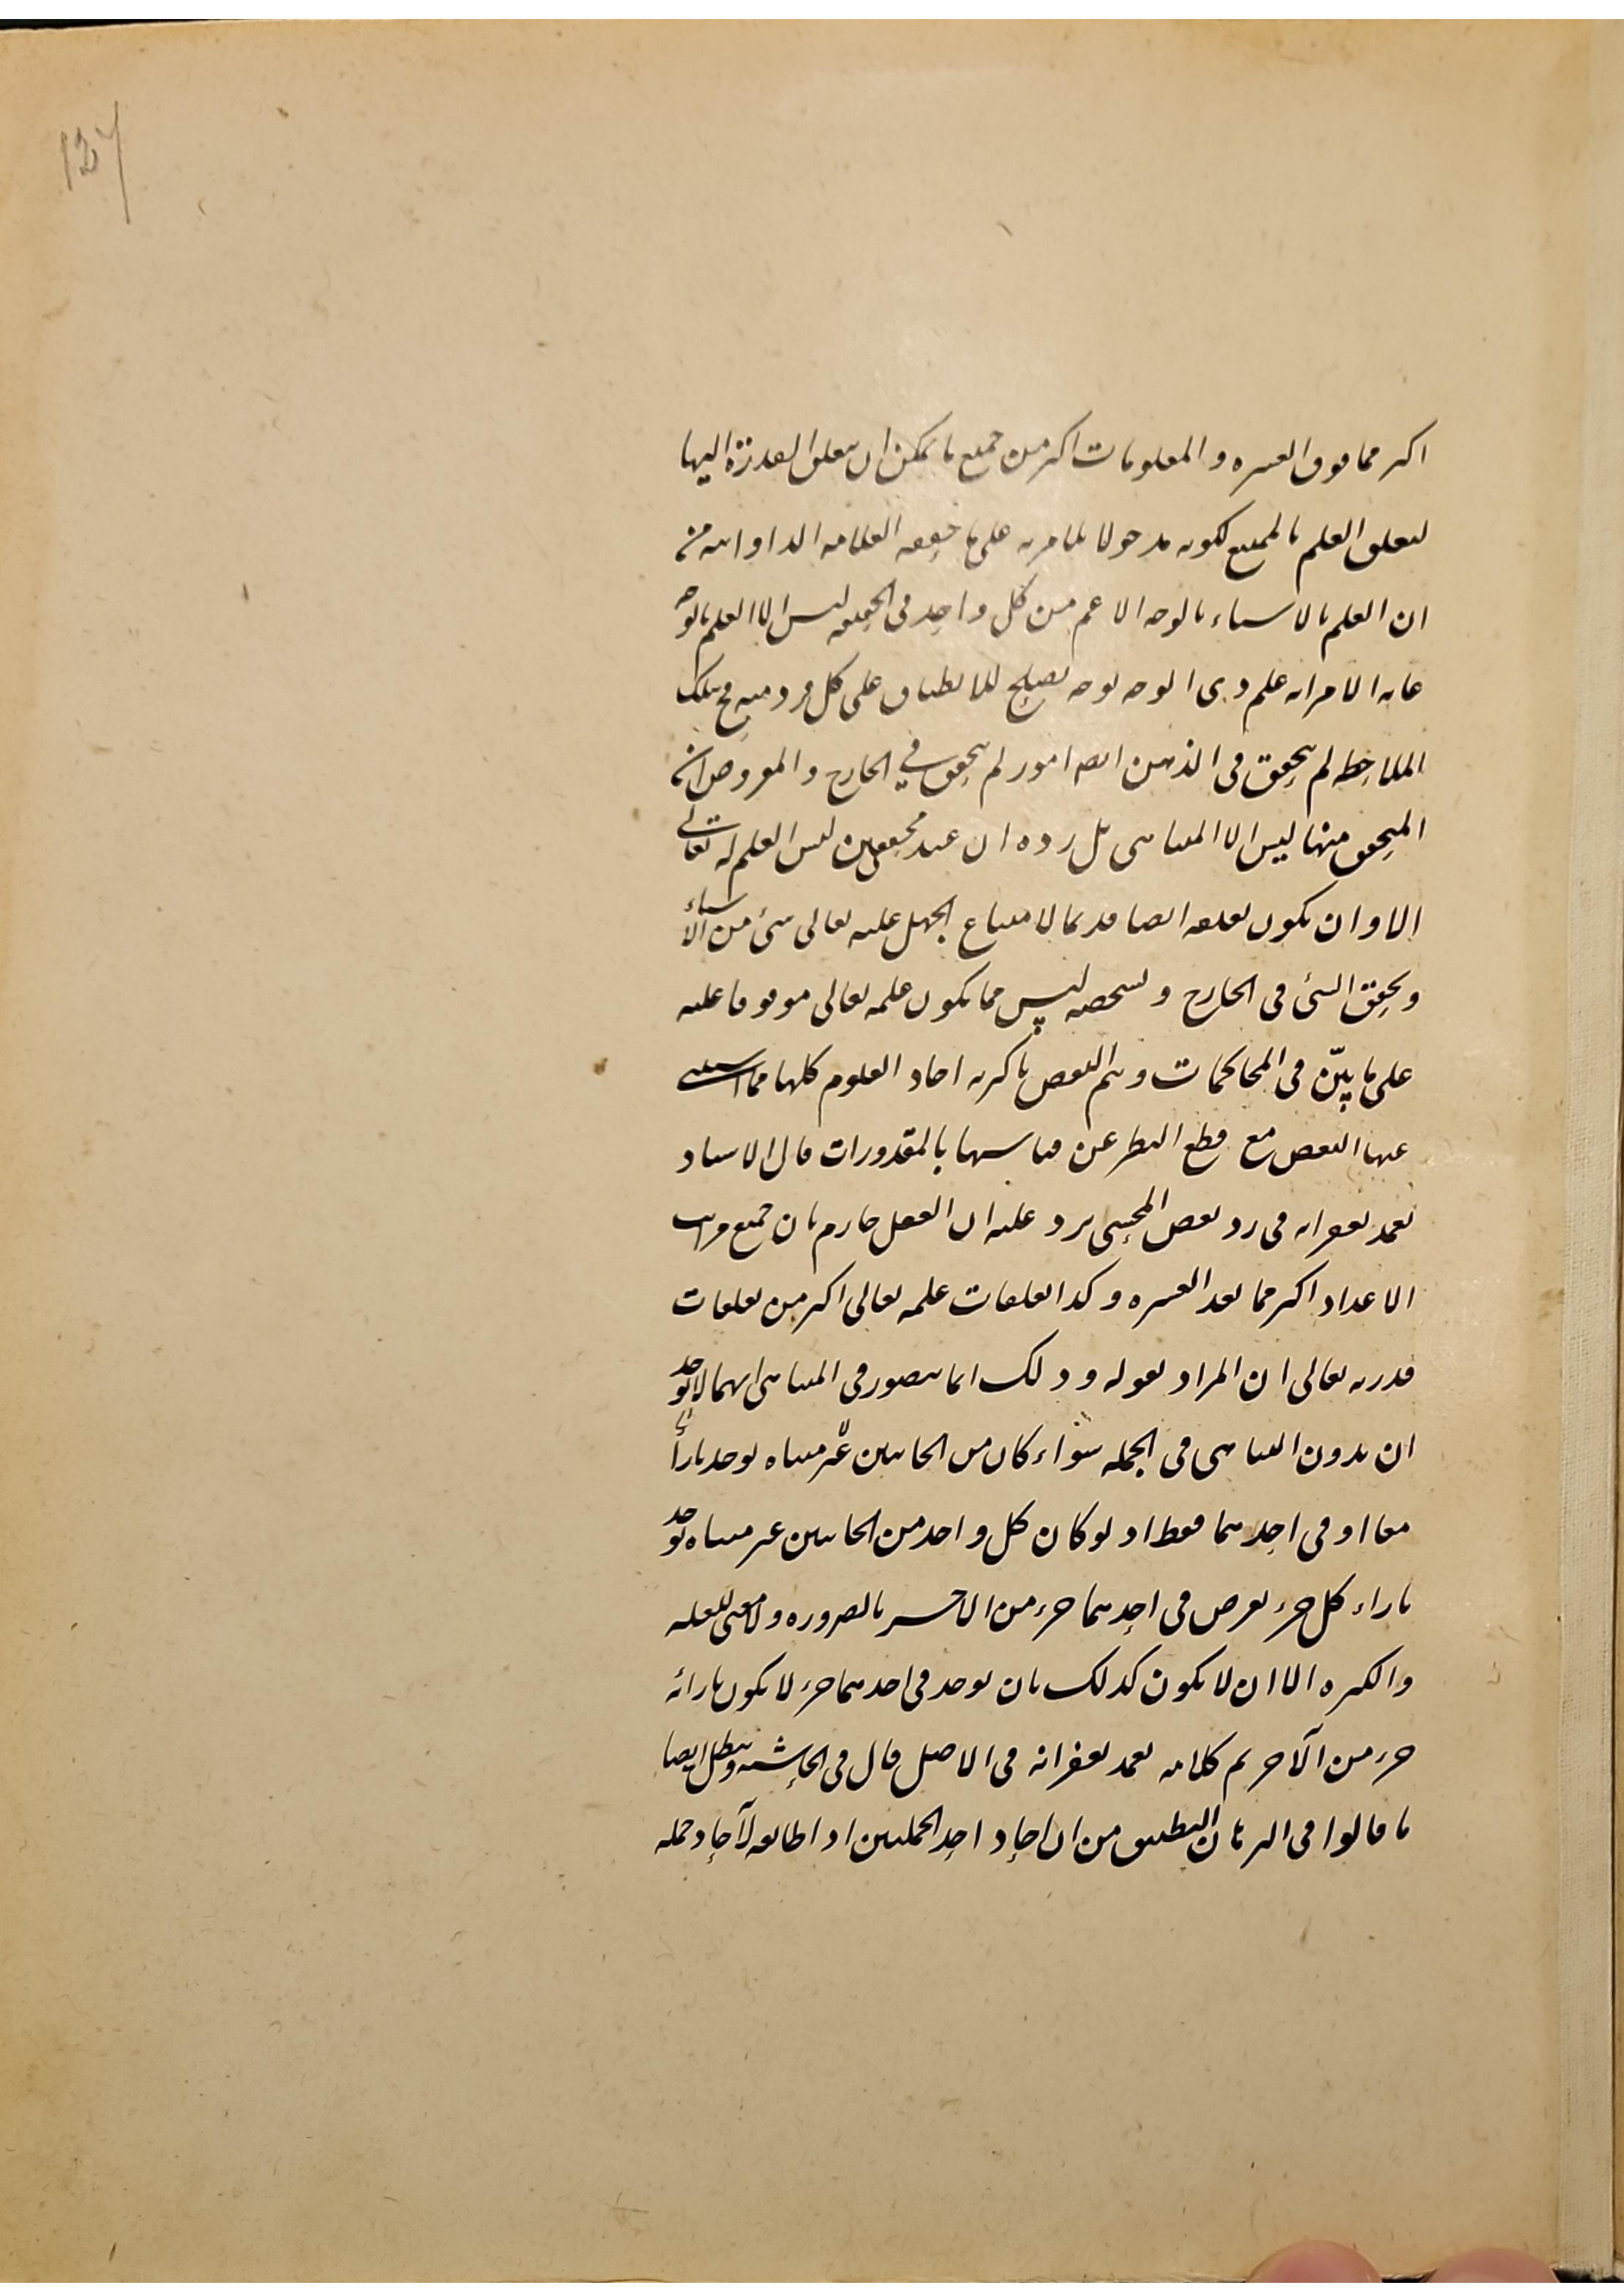 137
اكثر مما فوق العشره والمعلومات اكثر من جميع ما يمكن ان يتعلق القدرة اليها
لتعلق العلم بالممتنع لكونه مدخولا بما مر به على ما حققه العلامه الدوانيه من
ان العلم بالاشياء بالوجه الاعم من كل واحد فى الحقيقه ليس الا العلم بالوجه
غايه الامر انه علم ذى الوجه بوجه يصلح للانطباق على كل فرد منه فح تلك
الملاحظه لم يتحقق فى الذهن ايضا امور لم يتحقق في الخارج والمفروض ان
المتحقق منها ليس الا المتناهى بل رده ان عند محققين ليس العلم له تعالى
الا وان يكون تعلقه ايضا قديما لامتناع الجهل عليه تعالى بشئ من الاشياء
وتحقق الشئ فى الخارج وتشخصه ليس مما يكون علمه تعالى موقوفا عليه
على ما بيّن فى المحاكمات وتم النقض باكثريه احاد العلوم كلها مما استثنى
عنها البعض مع قطع النظر عن قياسها بالمقدورات قال الاستاد
تغمد بغفرانه فى رد بعض المحشى يرد عليه ان العقل جازم بان جميع مراتب
الاعداد اكثر مما بعد العشره وكذا تعلقات علمه تعالى اكثر من تعلقات
قدرته تعالى ان المراد بقوله وذلك انما يتصور فى المتناهى انهما لا يوجد
ان بدون التناهى فى الجمله سواء كان من الجانبين غير متناه يوجد بازاء
معا او فى احدهما فقط اذ لو كان كل واحد من الجانبين غير متناه يوجد
بازاء كل جزء يفرض فى احدهما جزء من الآخر بالضروره ولا معنى للقله
والكثره الا ان لا يكون كذلك بان يوجد فى احدهما جزء لا يكون بازائه
جزء من الآخر تم كلامه تغمد بغفرانه فى الاصل قال فى الحاشيه ويبطل ايضا
ما قالوا فى البرهان التطبيق من ان احاد احد الجملتين اذا طابقه لآحاد جمله